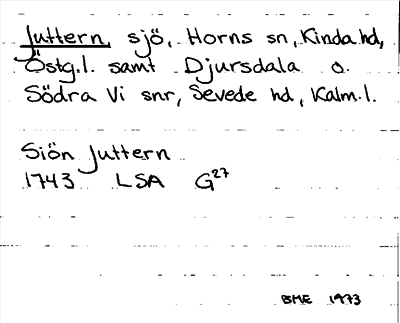 Juttern, sjö, Horns sn, Kinda hd,
Östg.l. samt Djursdala o.
Södra Vi snr, Sevede hd, Kalm.l.
Siön Juttern
1743 LSA G27
BME 1973